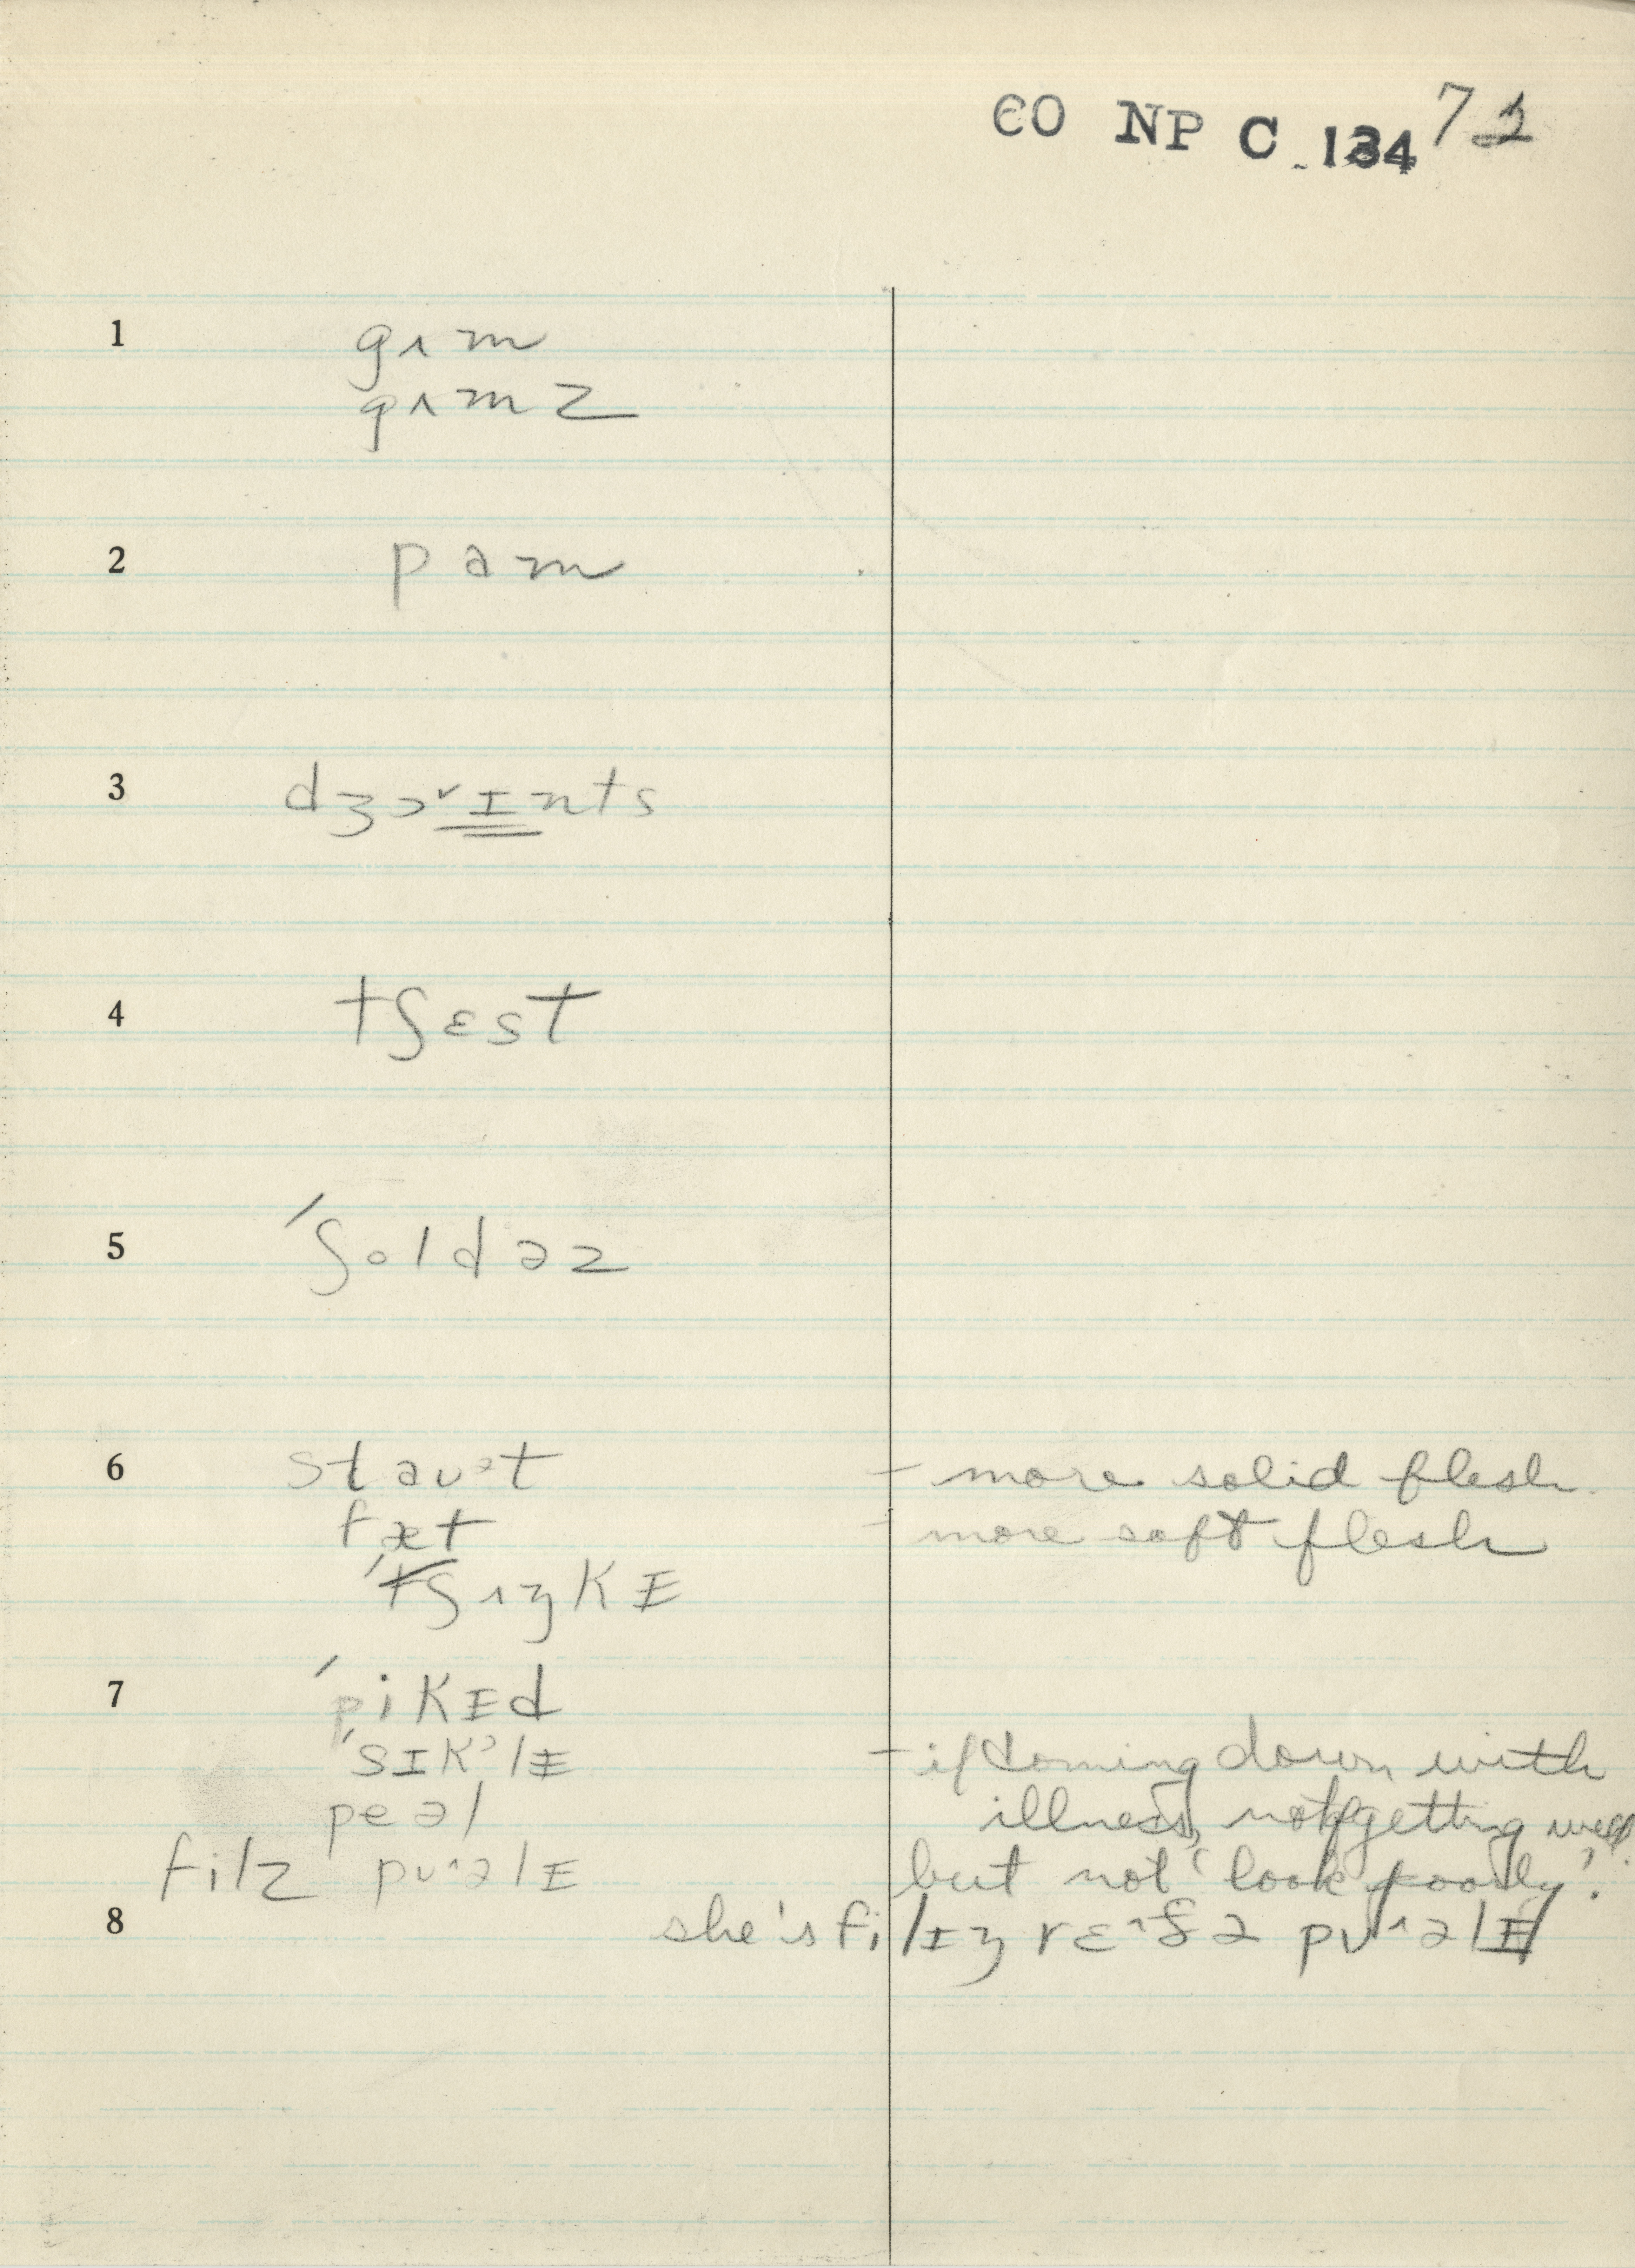 CO NP C 134 72
1 gʌm
gʌmz
2 pam
3 dʒɔˇɪnts
4 tʃɛst
5 ˈʃoldəz
6 staᴜᵊt - more solid flesh.
fæt - more soft flesh
ˈtʃʌŋkɪ
7 ˈpikɪd
ˈsɪkˀlɪ - if coming down with
peəl illness, not getting well
filz pᴜ^əlɪ but not 'look poorly'.
8 she's filɪŋ rɛ^ðə pᴜ^əlɪ